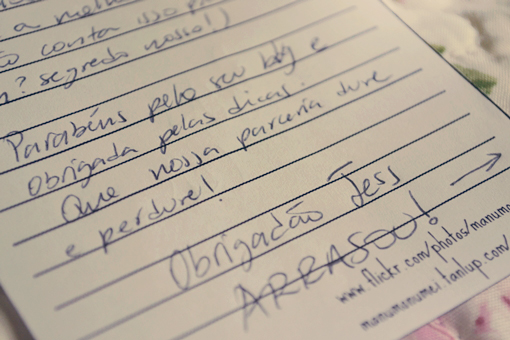 a melho
o conta isso pa
n? segredo nosso!)
Parabéns pelo seu blog e
obrigada pelas dicas.
Que nossa parceria dure
e perdure!
Obrigadão Jess
ARRASOU!
www.flickr.com/photos/manuma
manumanumei.tanlup.com/